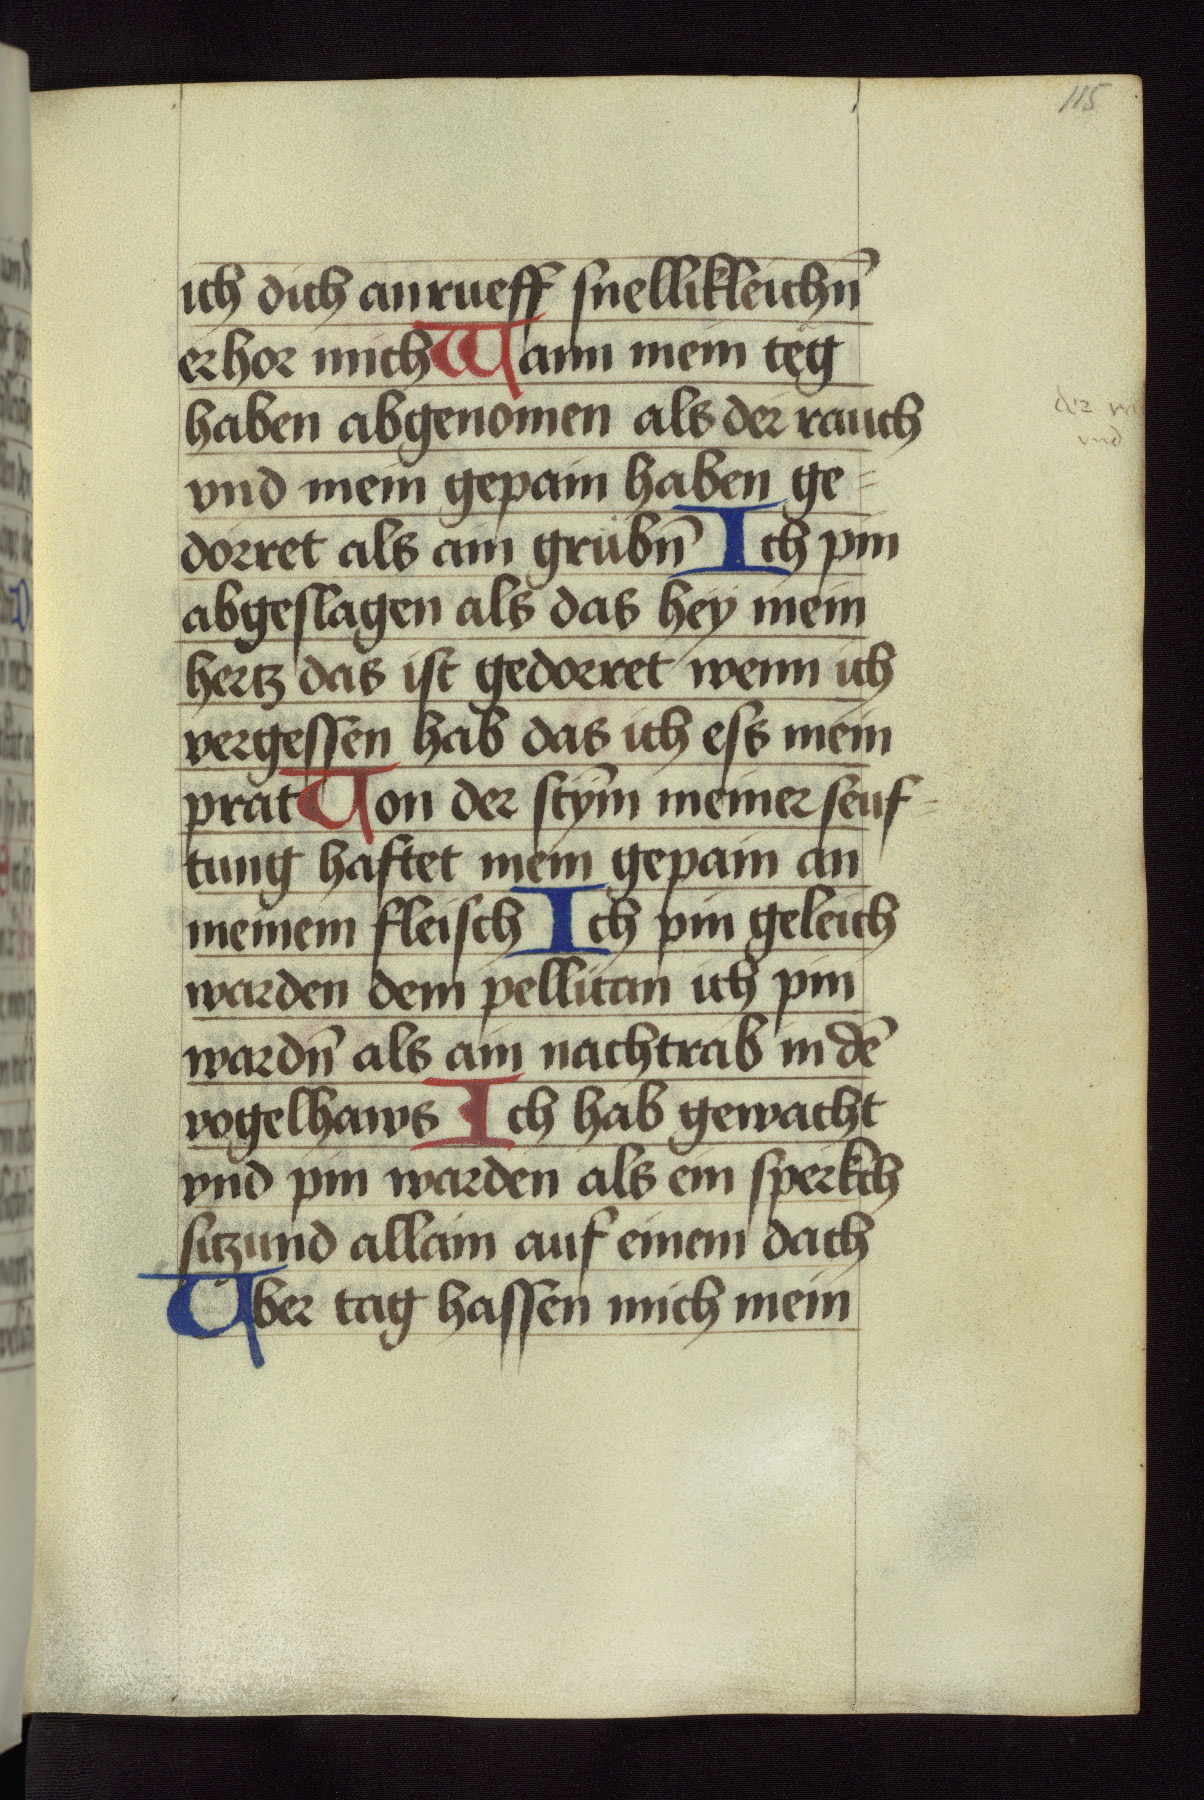 115
ich dich anrueff snellikleichn̄
erhor mich Wann mein teg
haben abgenomen als der rauch
vnd mein gepain haben ge=
dorret als ain grübn̄ Ich pin
abgeslagen als das hey mein
hertz das ist gedorret wenn ich
vergessen hab das ich ess mein
prat Von der stym̄ meiner seuf=
tung haftet mein gepain an
meinem fleisch Ich pin geleich
warden dem pellican ich pin
wardn̄ als ain nachtrab in dē
vogelhaws Ich hab gewacht
vnd pin warden als ein sperkch
sitzund allain auf einem dach
Vber tag hassen mich mein